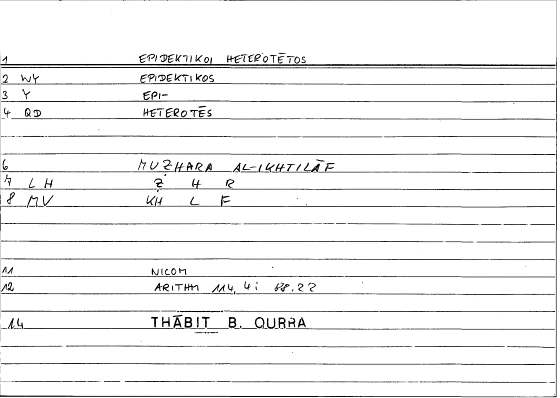 1 EPIDEKTIKOI HETEROTĒTOS
2 WY EPIDEKTIKOS
3 Y EPI-
4 QD HETEROTĒS
6 MUẒHARA AL-IKHTILĀF
7 LH Ẓ H R
8 MV KH L F
11 NICOM
12 ARITHM 114, 4: 88.22
14 THĀBIT B. QURRA